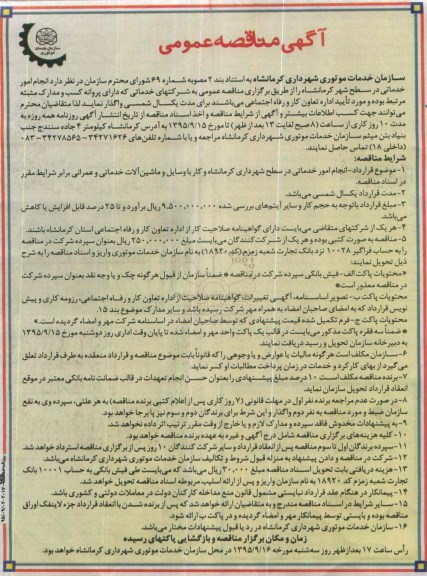 آگهی مناقصه عمومی
سازمان خدمات موتوری
سازمان خدمات موتوری شهرداری کرمانشاه به استناد بند ۲ مصوبه شماره ۶۹ شورای محترم سازمان در نظر دارد انجام امور
خدماتی در سطح شهر کرمانشاه را از طریق برگزاری مناقصه عمومی به شرکتهای خدماتی که دارای پروانه کسب و مدارک مثبته
مرتبط بوده و مورد تأیید اداره تعاون کار و رفاه اجتماعی می‌باشند برای مدت یکسال شمسی واگذار نماید لذا متقاضیان محترم
می‌توانند جهت کسب اطلاعات بیشتر و آگهی از شرایط مناقصه و اخذ اسناد مناقصه از تاریخ انتشار آگهی روزنامه همه روزه به
مدت ۱۰ روز کاری از ساعت (۸ صبح لغایت ۱۳ بعد از ظهر) تا مورخ ۱۳۹۵/۹/۱۵ به آدرس کرمانشاه کیلومتر ۴ جاده سنندج جنب
بنیاد بتن میثم سازمان خدمات موتوری شهرداری کرمانشاه مراجعه و یا با شماره تلفن‌های ۳۴۲۷۱۶۲۶ – ۳۴۲۷۸۵۶۵ – ۰۸۳
تماس حاصل نمایند.
شرایط مناقصه:
۱-موضوع قرارداد-انجام امور خدماتی در سطح شهرداری کرمانشاه و کار با وسایل و ماشین آلات خدماتی و عمرانی برابر شرایط مقرر
در اسناد مناقصه.
۲-مدت قرارداد یکسال شمسی می‌باشد.
۳-مبلغ قرارداد باتوجه به حجم کار و سایر آیتم‌های بررسی شده ۹٫۵۰۰٫۰۰۰٫۰۰۰ ریال برآورد و تا ۲۵ درصد قابل افزایش یا کاهش
می‌باشد.
۴-هر یک از شرکتهای متقاضی می‌بایست دارای گواهینامه صلاحیت کار از اداره تعاون کار و رفاه اجتماعی استان کرمانشاه باشند.
۵-مناقصه به صورت کتبی بوده و هر یک از شرکت‌کنندگان می‌بایست مبلغ ۲۵۰٫۰۰۰٫۰۰۰ ریال بعنوان سپرده شرکت در مناقصه
را به حساب فراگیر ۱۰۰۲۸ نزد بانک تجارت شعبه زمزم (کد ۱۸۹۲۰) به نام سازمان خدمات موتوری واریز و اسناد مناقصه را به شرح
ذیل تحویل نمایند.
*محتویات پاکت الف- فیش بانکی سپرده شرکت در مناقصه * ضمناً سازمان از قبول هرگونه چک و یا وجه نقد بعنوان سپرده شرکت
در مناقصه معذور است*
محتویات پاکت ب- تصویر اساسنامه، آگهی تغییرات، گواهینامه صلاحیت از اداره تعاون کار و رفاه اجتماعی، رزومه کاری و پیش
نویس قرارداد که به امضای صاحبان امضاء به همراه مهر شرکت رسیده باشد و سایر مدارک موضوع بند ۱۵.
محتویات پاکت ج- فرم تکمیل شده قیمت پیشنهادی که توسط صاحبان امضاء در اساسنامه شرکت مهر و امضاء گردیده است.*
* ضمناً سه فقره پاکت مذکور می‌بایست در قالب یک پاکت واحد مهر و امضاء شده تا پایان وقت اداری روز دوشنبه مورخ ۱۳۹۵/۹/۱۵
به دبیرخانه سازمان تحویل و رسید دریافت نمایند.
۶-سازمان مکلف است هرگونه مالیات یا عوارض و یا وجوهی را که قانوناً بابت موضوع مناقصه و قرارداد منعقده به طرف قرارداد تعلق
می‌گیرد از بهای کارکرد و خدمات در زمان پرداخت مطالبات او کسر نماید.
۷-برنده مناقصه مکلف است ۱۰ درصد مبلغ پیشنهادی را بعنوان حسن انجام تعهدات در قالب ضمانت نامه بانکی معتبر در موقع
انعقاد قرارداد تحویل سازمان نماید.
۸-در صورت عدم مراجعه برنده نفر اول در مهلت قانونی (۷ روز کاری پس از اعلام کتبی برنده مناقصه) به هر علتی، سپرده وی به نفع
سازمان ضبط و مورد مناقصه به نفر دوم واگذار و این شرط برای برندگان دوم و سوم نیز پا برجا خواهد بود.
۹-به پیشنهادات مخدوش فاقد سپرده و مدارک لازم و یا خارج از وقت مقرر ترتیب اثر داده نخواهد شد.
۱۰-کلیه هزینه‌های برگزاری مناقصه شامل درج آگهی و غیره به عهده برنده مناقصه خواهد بود.
۱۱-سپرده برندگان اول تا سوم مناقصه پس از انعقاد قرارداد و سایر شرکت کنندگان ۱۰ روز پس از برگزاری مناقصه استرداد خواهد شد.
۱۲-شرکت در مناقصه و دادن پیشنهاد به منزله قبول شروط و تکالیف سازمان خدمات موتوری شهرداری کرمانشاه می‌باشد.
۱۳-هزینه دریافتی بابت تحویل اسناد مناقصه مبلغ ۳۰٫۰۰۰ ریال می‌باشد که می‌بایست طی فیش بانکی به حساب ۱۰۰۰۱ بانک
تجارت شعبه زمزم کد ۱۸۹۲۰ به نام سازمان واریز و پس از ارائه اسلیپ مربوطه اسناد مناقصه تحویل خواهد شد.
۱۴-پیمانکار در هنگام عقد قرارداد نبایستی مشمول قانون منع مداخله کارکنان دولت در معاملات دولتی و کشوری باشد.
۱۵-سایر شرایط در اسناد مناقصه مندرج و به متقاضیان ارائه خواهد شد که پس از برنده شدن با انعقاد قرارداد جزء لاینفک اوراق
مناقصه بوده و بایستی توسط پیمانکار مهر و امضاء گردیده و در پاکت ب ارائه شود.
۱۶-سازمان خدمات موتوری شهرداری کرمانشاه در رد یا قبول پیشنهادات مختار می‌باشد.
زمان و مکان برگزار مناقصه و بازگشایی پاکتهای رسیده
رأس ساعت ۱۷ بعدازظهر روز سه‌شنبه مورخه ۱۳۹۵/۹/۱۶ در محل سازمان خدمات موتوری شهرداری کرمانشاه خواهد بود.